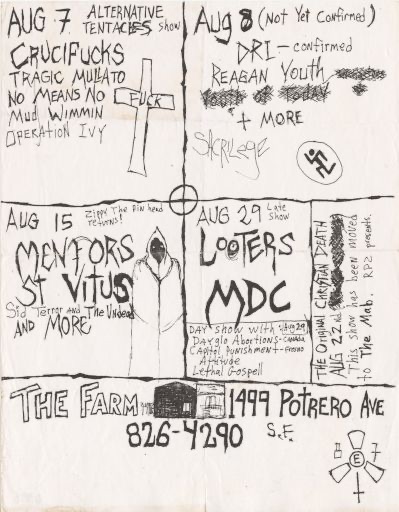 AUG 7 ALTERNATIVE
TENTACLES Show
CRUCIFUCKS
TRAGIC MULLATO
NO MEANS NO
Mud WIMMIN
OPERATION IVY
FUCK
Aug 8 (Not Yet Confirmed)
DRI - confirmed
REAGAN YOUTH
+ MORE
SACRILEGE
AUG 15 Zippy The Pin head
returns!
MENTORS
ST VITUS
Sid Terror and The Undead
AND MORE
AUG 29 Late
Show
LOOTERS
MDC
DAY Show WITH Aug 29
Dayglo Abortions - CANADA
Capitol Punishment - Fresno
Attitude
Lethal Gospell
THE ORIGINAL CHRISTIAN DEATH
AUG 22nd
This show has been moved
to The Mab. RPZ presents.
THE FARM 1499 POTRERO AVE
826-4290 S.F.
8 E 7